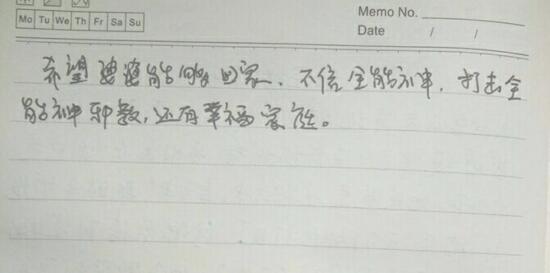 Memo No.
Mo Tu We Th Fr Sa Su
Date / /
希望婆婆能够回家、不信全能神,打击全
能神邪教,还有幸福家庭。